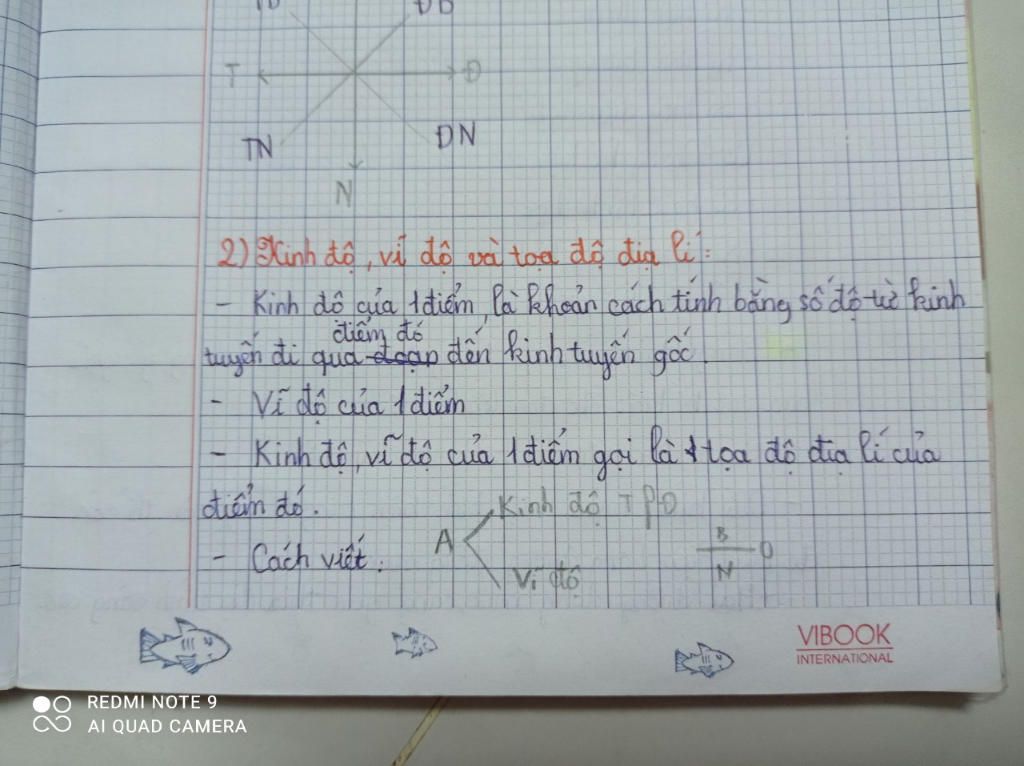 ĐB
T
Đ
TN
ĐN
N
2) Kinh độ, vĩ độ và tọa độ địa lí:
- Kinh độ của 1 điểm, là khoản cách tính bằng số độ từ kinh
điểm đó
tuyến đi qua đoạn đến kinh tuyến gốc
- Vĩ độ của 1 điểm
- Kinh độ, vĩ độ của 1 điểm gọi là tọa độ địa lí của
điểm đó.
- Cách viết:
A
Kinh độ T
Vĩ độ
B
0
N
VIBOOK
INTERNATIONAL
REDMI NOTE 9
AI QUAD CAMERA